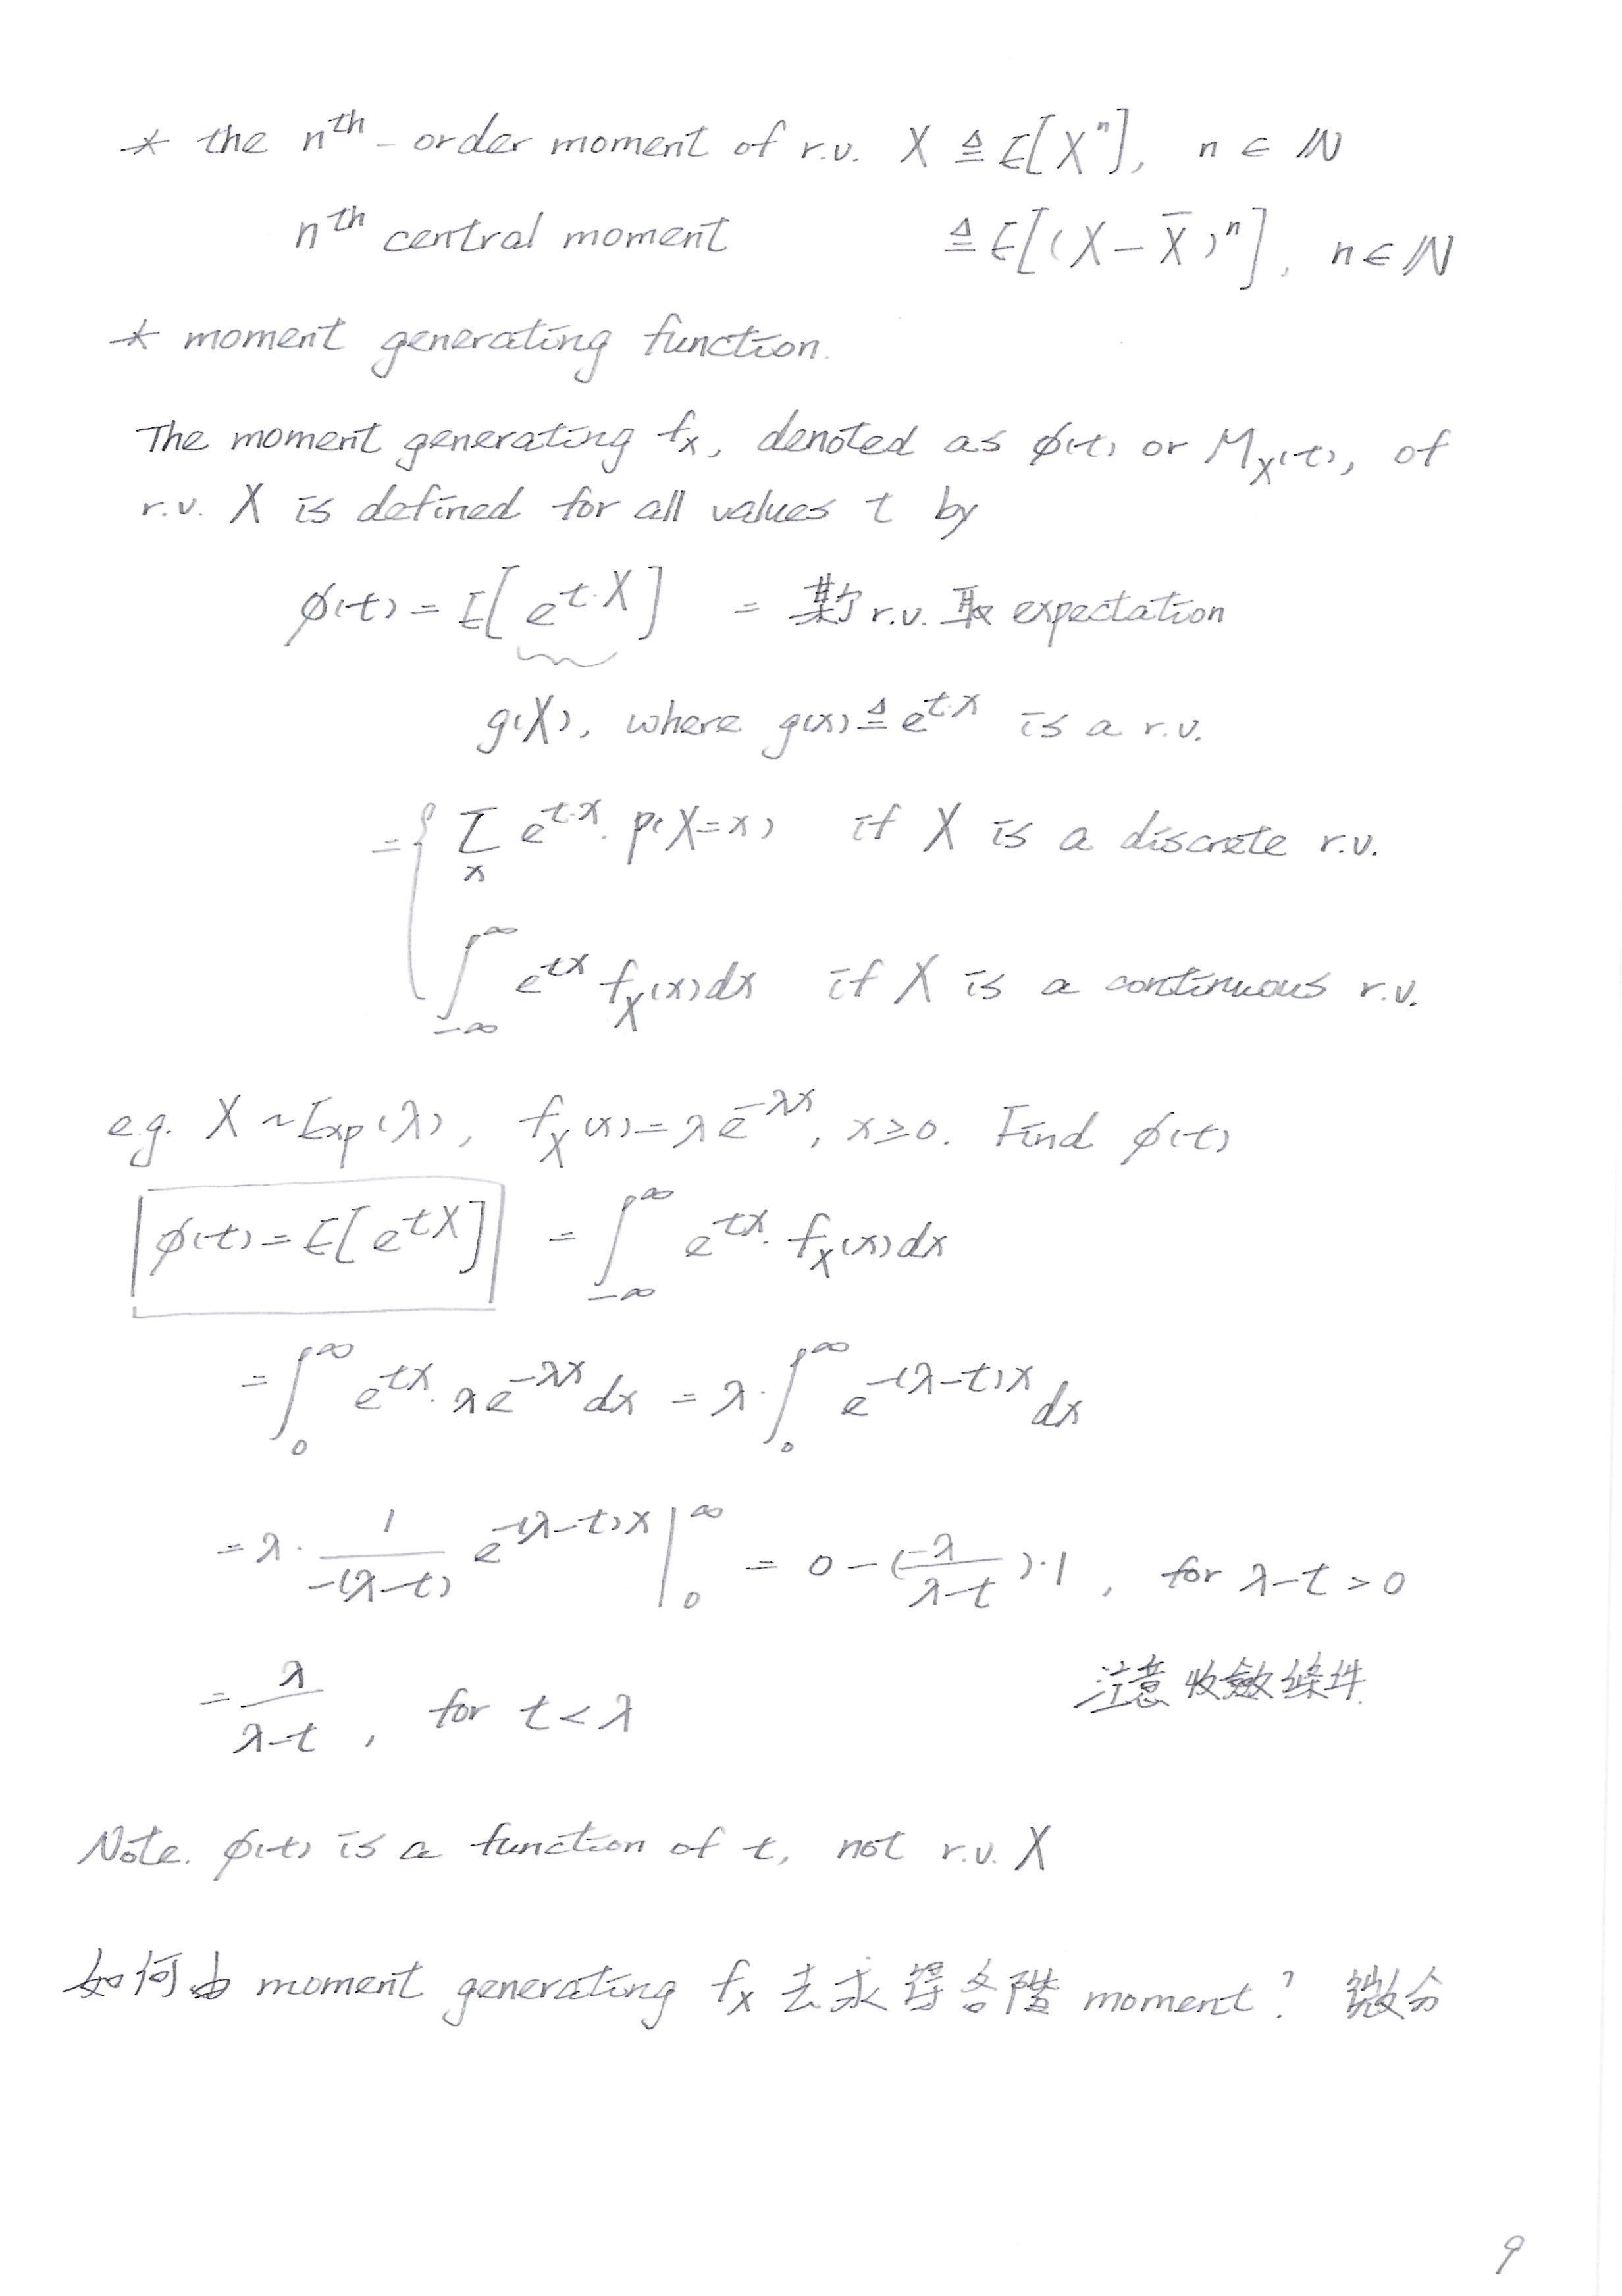 * the nᵗʰ-order moment of r.v. X ≜ E[Xⁿ], n ∈ ℕ
nᵗʰ central moment ≜ E[(X-X̄)ⁿ], n∈ℕ
* moment generating function.
The moment generating fx, denoted as ϕ(t) or M_X(t), of
r.v. X is defined for all values t by
ϕ(t) = E[e^{t·X}] = 對 r.v. 取 expectation
g(X), where g(x) ≜ e^{t·x} is a r.v.
= { Σ_x e^{t·x}·p(X=x) if X is a discrete r.v.
∫_{-∞}^{∞} e^{tx} f_X(x)dx if X is a continuous r.v.
e.g. X ~ Exp(λ), f_X(x) = λe^{-λx}, x≥0. Find ϕ(t)
ϕ(t) = E[e^{tX}] = ∫_{-∞}^{∞} e^{tx}·f_X(x)dx
= ∫_0^∞ e^{tx}·λe^{-λx}dx = λ·∫_0^∞ e^{-(λ-t)x}dx
= λ·\frac{1}{-(λ-t)} e^{-(λ-t)x} |_0^∞ = 0-(\frac{-λ}{λ-t})·1, for λ-t>0
注意收斂條件
= \frac{λ}{λ-t}, for t<λ
Note. ϕ(t) is a function of t, not r.v. X
如何由 moment generating fx 去求得各階 moment? 微分
9